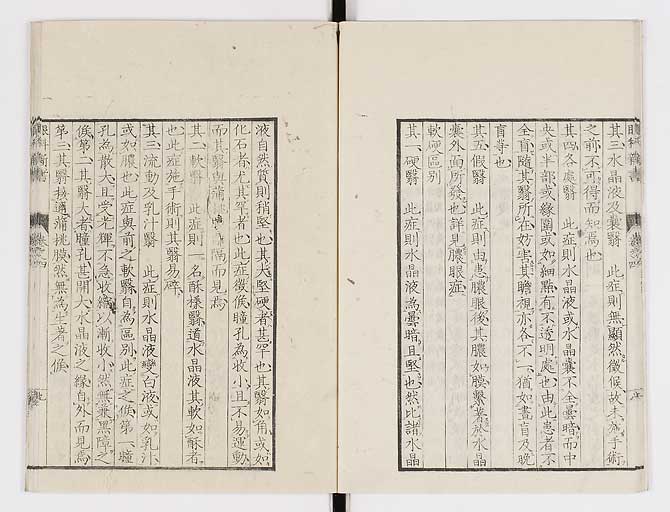 其三水晶液及囊翳　此症則無顯然徵候故未施手術
之前不可得而知焉也
其四各處翳　此症則水晶液或水晶囊不全曇暗而中
央或半部或緣圍或如細點有不透明處也由此患者不
全盲隨其翳所在妨害其瞻視亦各不一猶如晝盲及晚
盲等也
其五假翳　此症則由患膿眼後其膿如膜繫着於水晶
囊外面所發也詳見膿眼症
軟硬區別
其一硬翳　此症則水晶液為曇暗且堅也然比諸水晶
液自然質則稍堅也其大堅硬者甚罕也其翳如角或如
化石者尤其罕者也此症徵候瞳孔為收小且不易運動
而其翳與蒲桃膜隔而見焉
其二軟翳　此症則一名酪樣翳道水晶液其軟如酥者
也此症施手術則其翳易碎
其三流動及乳汁翳　此症則水晶液變白液或如乳汁
或如膿也此症與前之軟翳自為區別此症之候第一瞳
孔為散大且受光輝不急收縮以漸收小然無兼黑障之
候第二其翳大者瞳孔甚開大水晶液之緣自外而見焉
第三其翳接適蒲桃膜然無為生著之候
眼科新書
卷之四